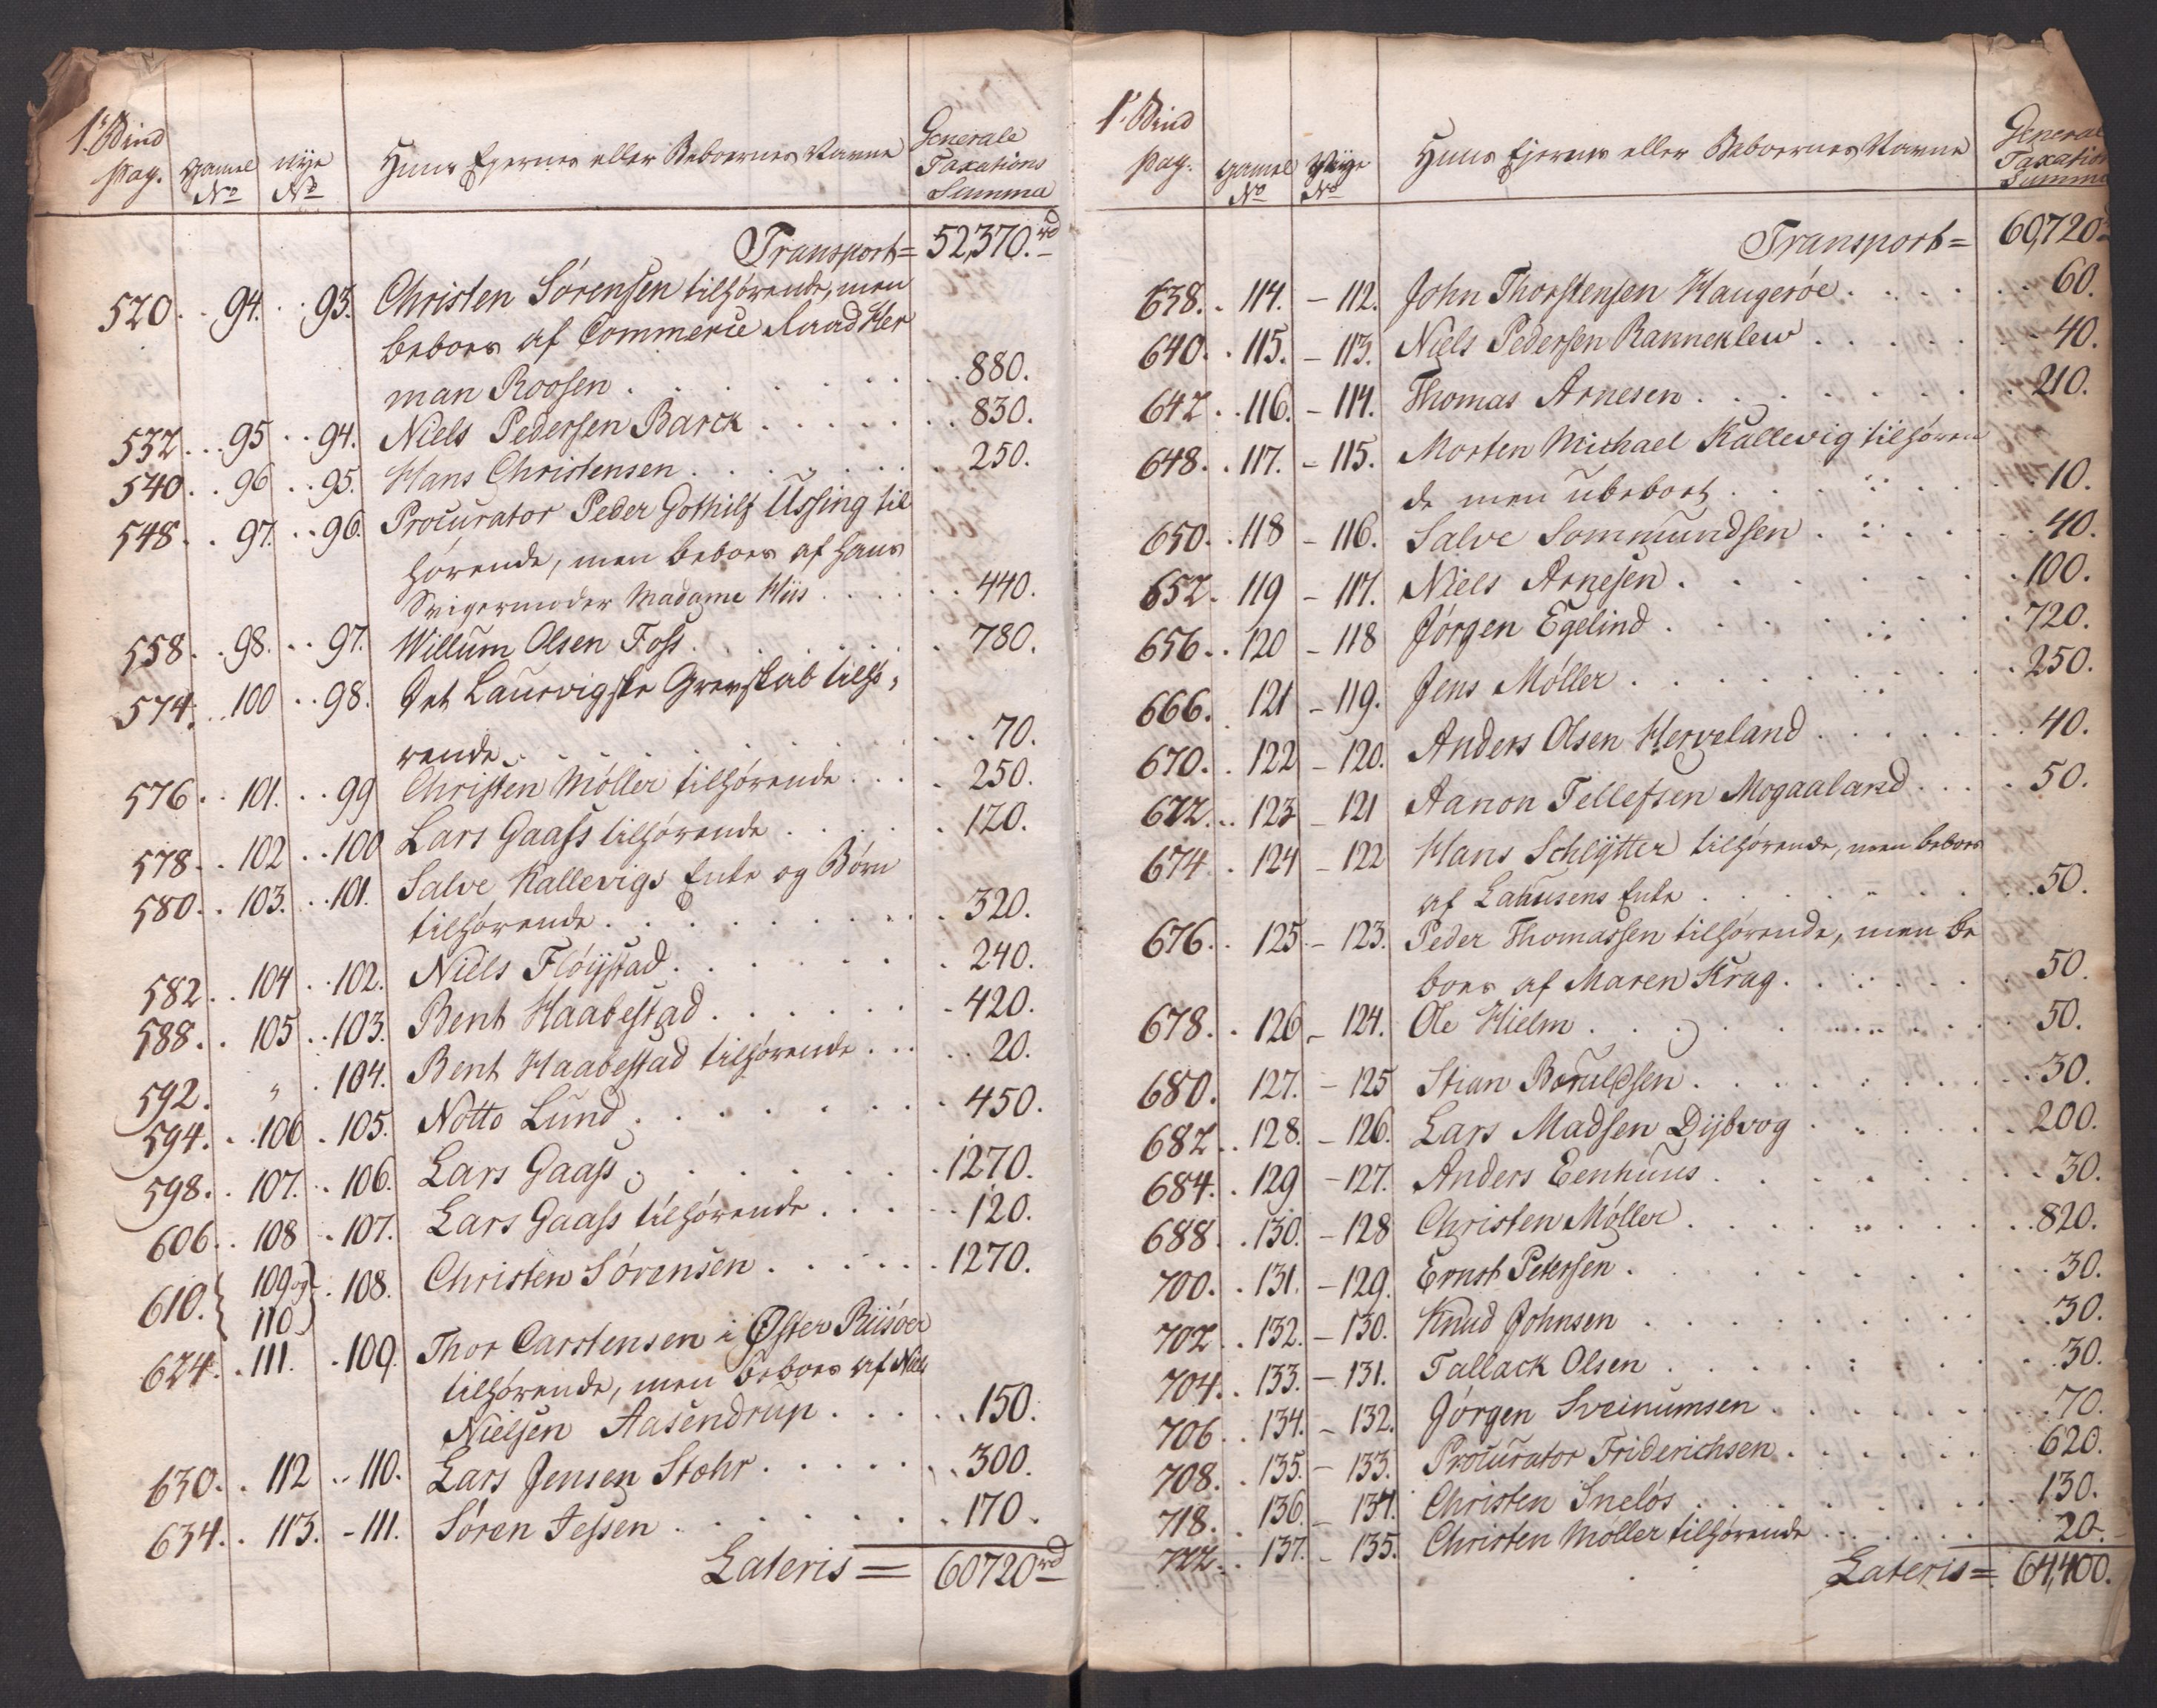 1ste Bind
pag. gamel No nÿe No Huus Ejernes eller Beboernes Navne Generale Taxations Summa
Transport = 52,370. rd
520. 94. 93. Christen Sørensen tilhørende, men
beboes af Commerce Raad Her
man Roosen 880.
532 95 94. Niels Pedersen Barck 830.
540 96 95. Hans Christensen 250.
548 97. 96. Procurator Peder Gothilf Ussing til
hørende, men beboes af hans
Svigermoder Madame Hiis 440.
558 98. 97. Willum Olsen Foss 780.
574. 100 98. Det Laurvigske Grevskab tilhø-
rende 70.
576 101. 99 Christen Møller tilhørende 250.
578 102 100 Lars Gaass tilhørende 120.
580 103. 101. Salve Kallevigs Enke og Børn
tilhørende 320.
582 104 102. Niels Fløÿstad 240.
588 105 103. Bent Haabestad 420.
592. " 104. Bent Haabestad tilhørende 20.
594. 106 105. Notto Lund 450.
598. 107. 106. Lars Gaass 1270.
606 108 107. Lars Gaass tilhørende 120.
610. 109 og 110 108. Christen Sørensen 1270.
624. 111. 109. Thor Carstensen i Øster Riisøer
tilhørende, men beboes af Niels
Nielsen Aasendrup 150.
630. 112 110. Lars Jensen Stæhr 300.
634. 113. 111. Søren Jessen 170.
Lateris = 60720 rd
1ste Bind
pag. gamel No Nÿe No Huus Ejernes eller Beboernes Navne General Taxation Summa
Transport = 60,720
638. 114. 112. John Thorstensen Haugerøe 60.
640. 115. 113. Niels Pedersen Ranneklew 40.
642 116. 114. Thomas Arnesen 210.
648. 117. 115. Morten Michael Kallevig tilhøren
de men ubeboet 10.
650. 118 116. Salve Sommundsen 40.
652. 119 117. Niels Arnesen 100.
656 120 118 Jørgen Egelind 720.
666. 121 119. Jens Møller 250.
670. 122 120. Anders Olsen Herveland 40.
672. 123 121 Aanon Tellefsen Mogaaland 50.
674 124 122 Hans Schlÿtter tilhørende, men beboes
af Laausens Enke 50.
676 125 123. Peder Thomassen tilhørende, men be
boes af Maren Krag 50.
678. 126 124. Ole Hielm 50.
680. 127. 125 Stian Boruldsen 30.
682 128. 126. Lars Madsen Dÿbvog 200.
684. 129 127. Anders Eenhuus 30.
688. 130. 128 Christen Møller 820.
700. 131. 129. Ernst Petersen 30.
702 132. 130. Knud Johnsen 30.
704. 133. 131. Tallack Olsen 30.
706 134. 132. Jørgen Sveinumsen 70.
708. 135. 133. Procurator Friderichsen 620.
718. 136. 134. Christen Sneløs 130.
722 137. 135. Christen Møller tilhørende 20.
Lateris = 64,400.